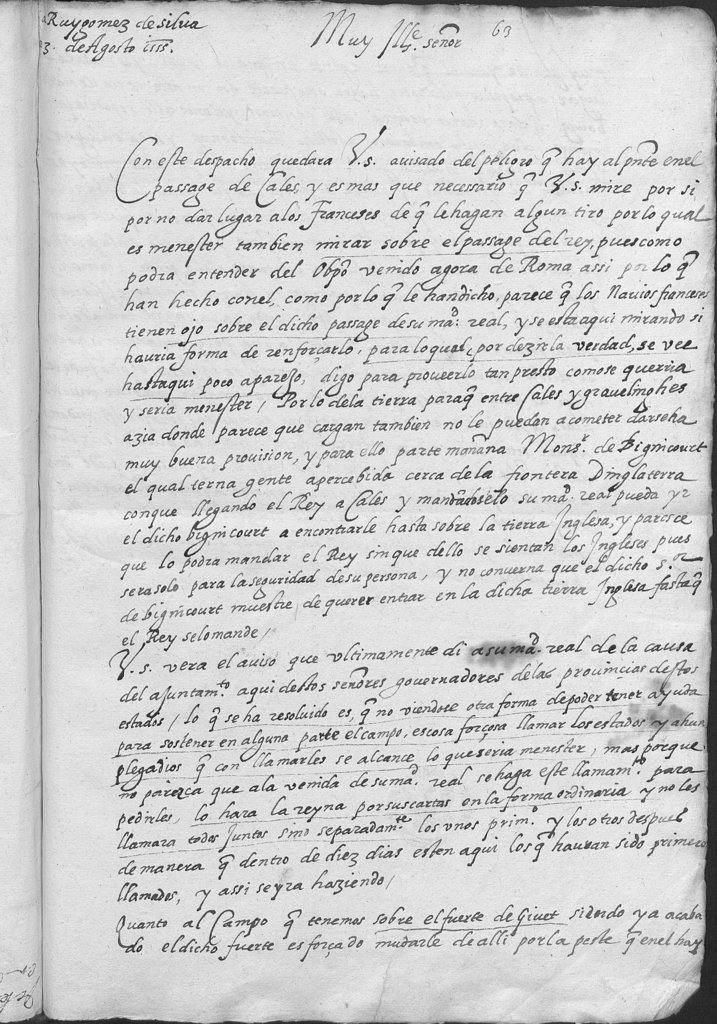 a Ruygomez de silva
3 de Agosto 1555.
Muy Ille. señor
63
Con este despacho quedara V.s. auisado del peligro q̃ hay al pn̄te en el
passage de Cales, y es mas que necessario q̃ V.s. mire por si
por no dar lugar a los Franceses de q̃ le hagan algun tiro por lo qual
es menester tambien mirar sobre el passage del rey, pues como
podra entender del Obpõ venido agora de Roma assi por lo q̃
han hecho conel, como por lo q̃ le han dicho, parece q̃ los Nauios franceses
tienen ojo sobre el dicho passage de su mad. real, y se esta aqui mirando si
hauria forma de renforçarlo, para lo qual, por dezir la verdad, se vee
hasta qui poco aparejo, digo para proueerlo tan presto como se querria
y seria menester, Por lo de la tierra paraq̃ entre Cales y grauelinghes
azia donde parece que cargan tambien no le puedan acometer darseha
muy buena prouision, y para ello parte mañana Monsr. de Bignicourt
el qual terna gente apercebida cerca de la frontera Dinglaterra
con que llegando el Rey a Cales y mandandoselo su mad. real pueda yr
el dicho bignicourt a encontrarle hasta sobre la tierra Inglesa, y paresce
que lo podra mandar el Rey sin que dello se sientan los Ingleses pues
sera solo para la seguridad de su persona, y no conuerna que el dicho s.or
de bignicourt muestre de querer entrar en la dicha tierra Inglesa fasta q̃
el Rey se lo mande,
V.s. vera el auiso que vltimamente di a su mad. real de la causa
del ajuntam.to aqui destos señores gouernadores de las prouincias destos
estados, lo q̃ se ha resoluido es, q̃ no viendote otra forma de poder tener ayuda
para sostener en alguna parte el campo, es cosa forçosa llamar los estados, y ahun
plega dios q̃ con llamarles se alcance lo que seria menester, mas porque
no parezca que a la venida de su mad. real se haga este llamam.to para
pedirles, lo hara la reyna por sus cartas en la forma ordinaria y no les
llamara todos juntos sino separadam.te los vnos prim.o y los otros despues
de manera q̃ dentro de diez dias esten aqui los q̃ hauran sido primero
llamados, y assi se yra haziendo,
Quanto al Campo q̃ tenemos sobre el fuerte de Giuet siendo ya acaba
do el dicho fuerte es forçado mudarle de alli por la peste q̃ en el hay